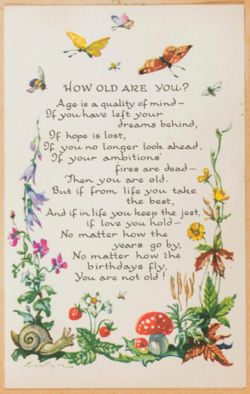 HOW OLD ARE YOU?
Age is a quality of mind—
If you have left your
dreams behind,
If hope is lost,
If you no longer look ahead,
If your ambitions'
fires are dead—
Then you are old.
But if from life you take
the best,
And if in life you keep the jest,
if love you hold—
No matter how the
years go by,
No matter how the
birthdays fly,
You are not old!